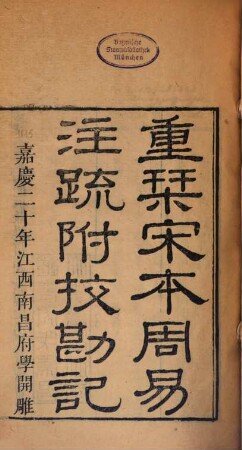 重栞宋本周易
注疏附挍勘記
嘉慶二十年江西南昌府學開雕
Bayerische
Staatsbibliothek
München